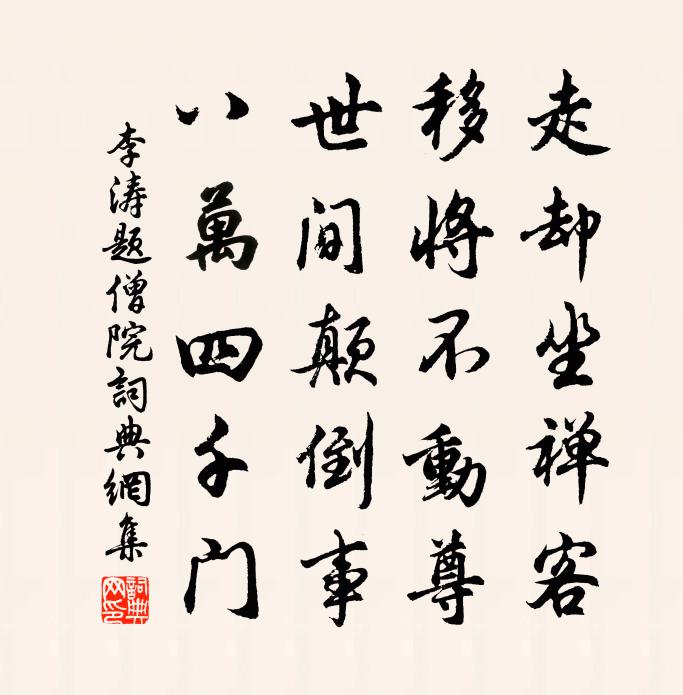 走却坐禅客
移將不動尊
世间顛倒事
八萬四千门
李涛題僧院詞典網集
詞典网印